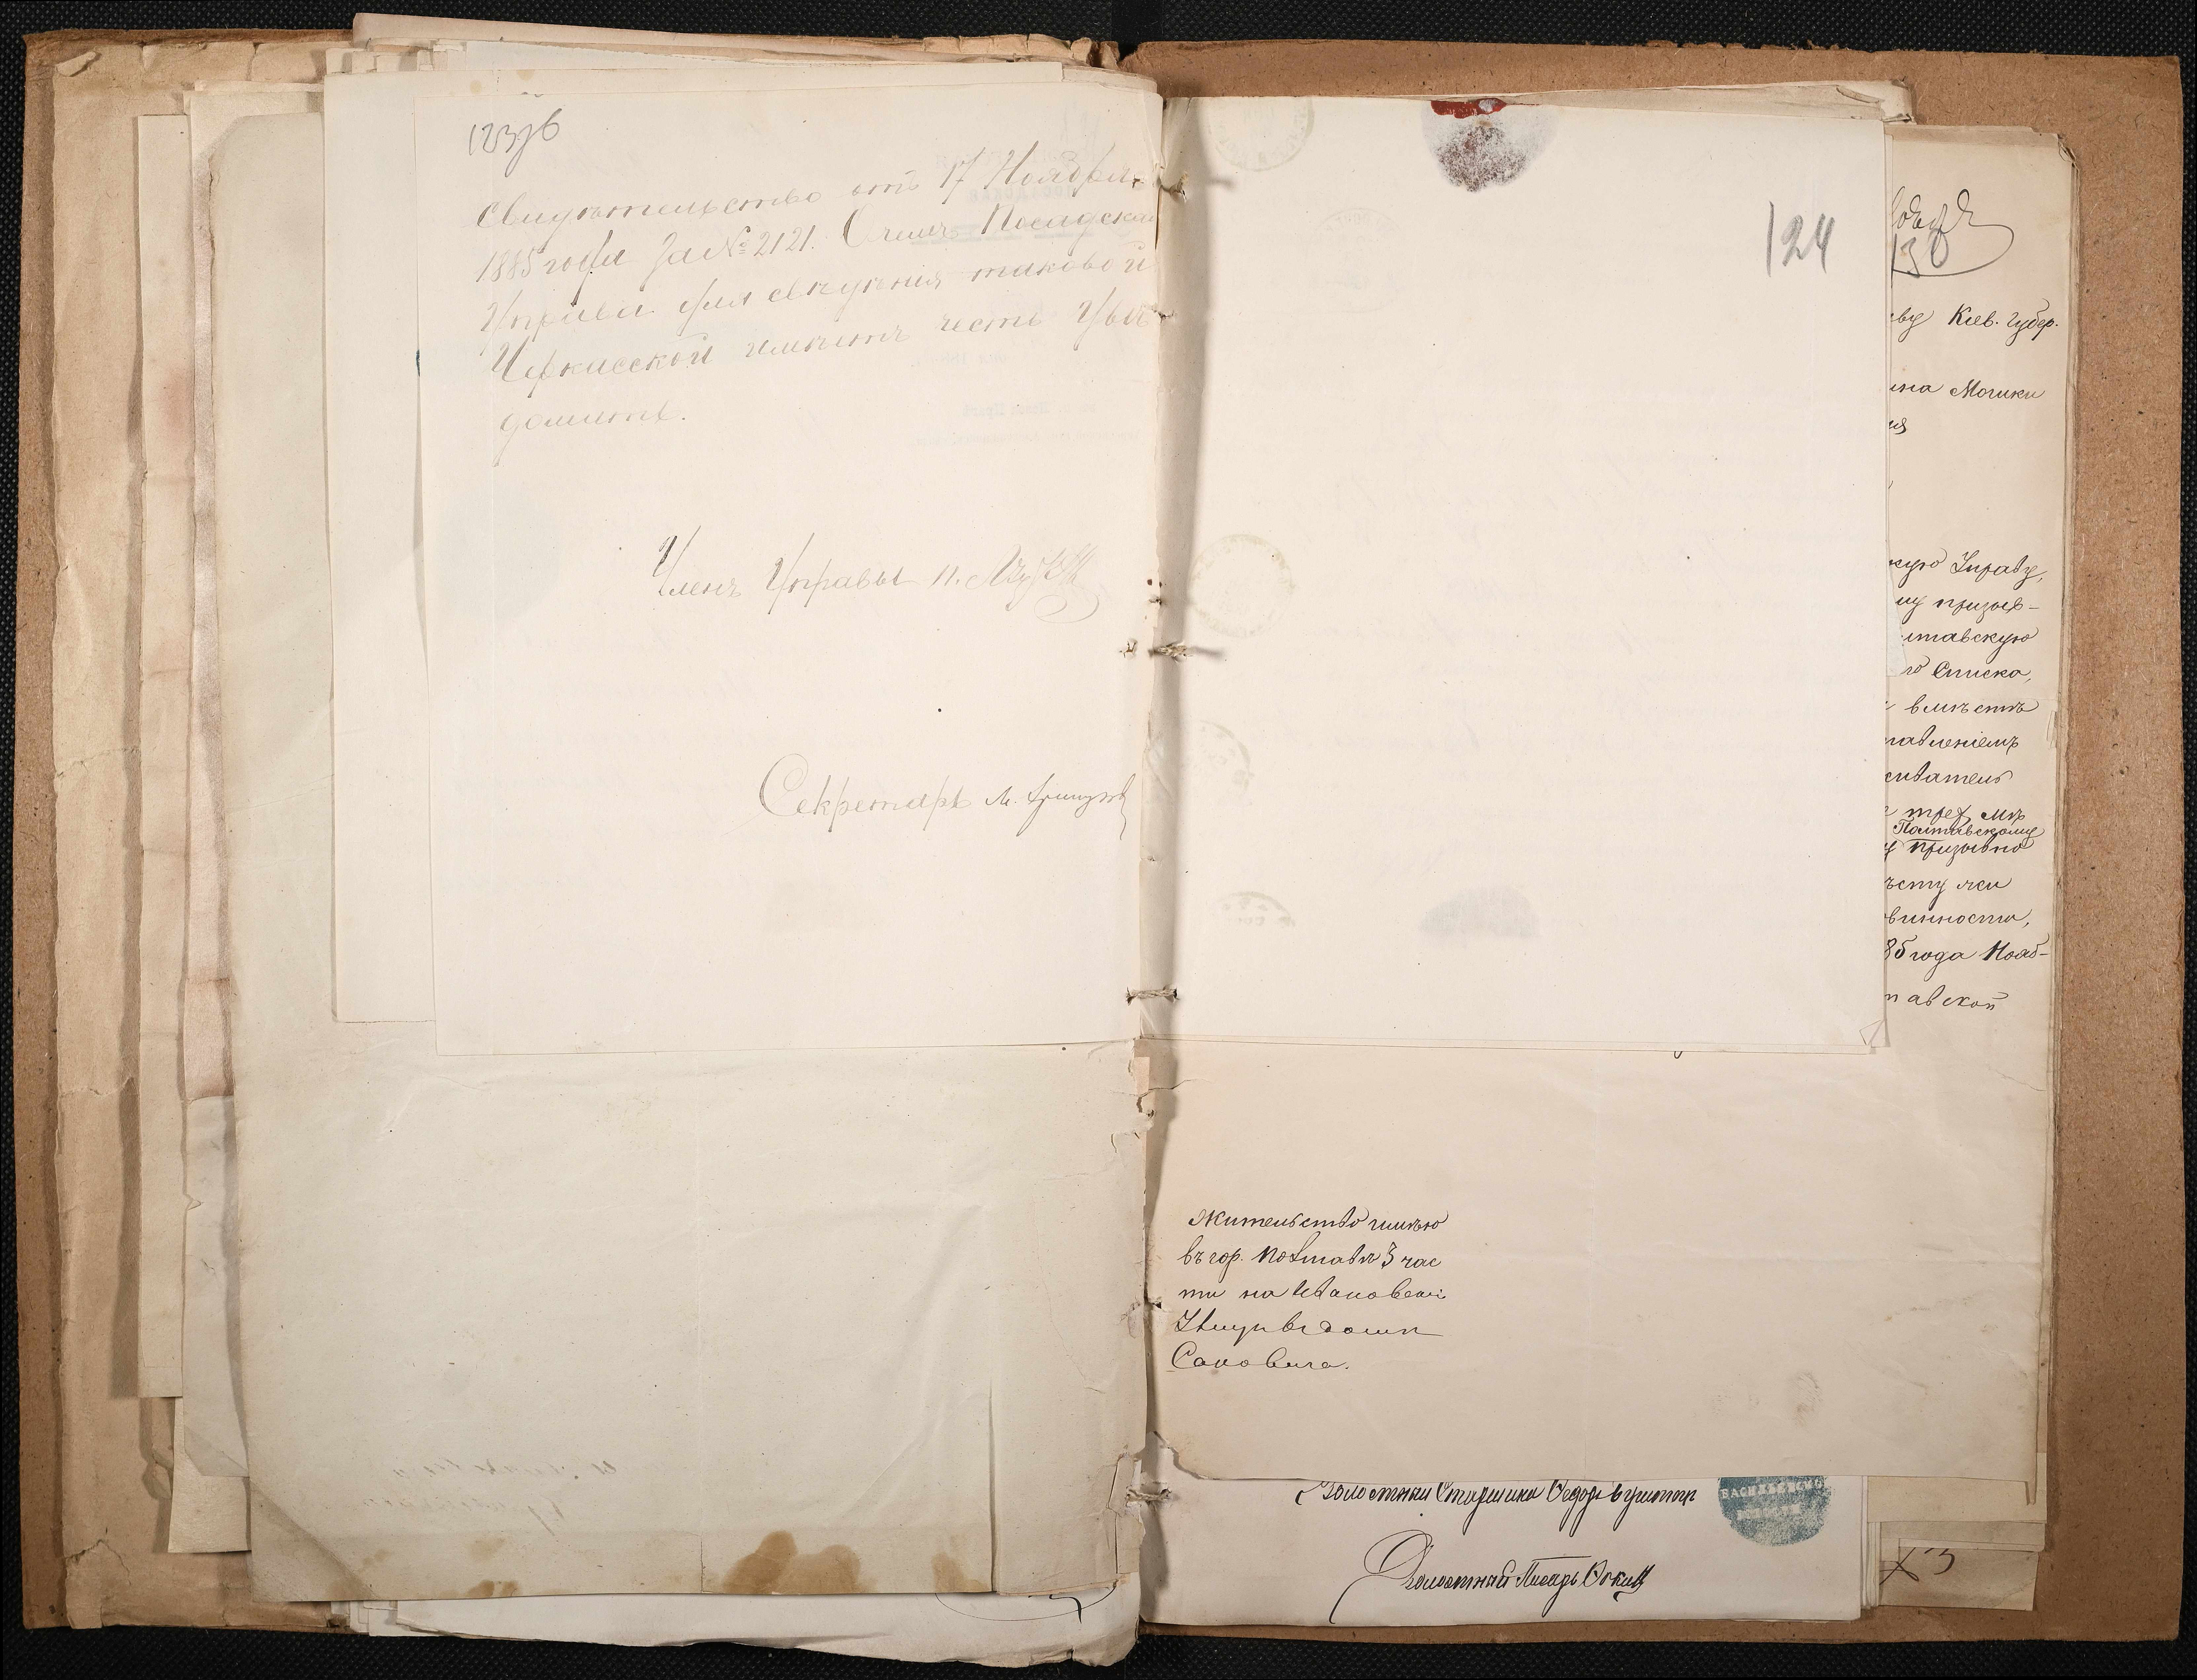 123об
свидѣтельство отъ 17 Ноября
1885 года за № 2121. О чемъ Посадская
Управа для свѣдѣнія таковой
Черкасской имѣетъ честь увѣ
домить.
Членъ Управы П.
Секретарь М.
124
130
Кіев. Губер.
ина Мочики
ія
скую Управу,
му призыв-
лтавскую
го Списка,
вмѣстѣ
тавленіемъ
трех мѣ
Полтавскому
призывно
ѣсту
винности,
85 года Нояб-
тавской
Жительство имѣю
въ гор. Полтавѣ 3 час
ти на Ивановской
Улицѣ въ домѣ
Сановича.
Волостный Старшина Ѳедоръ
ВАСИЛЬ
Волостный Писарь